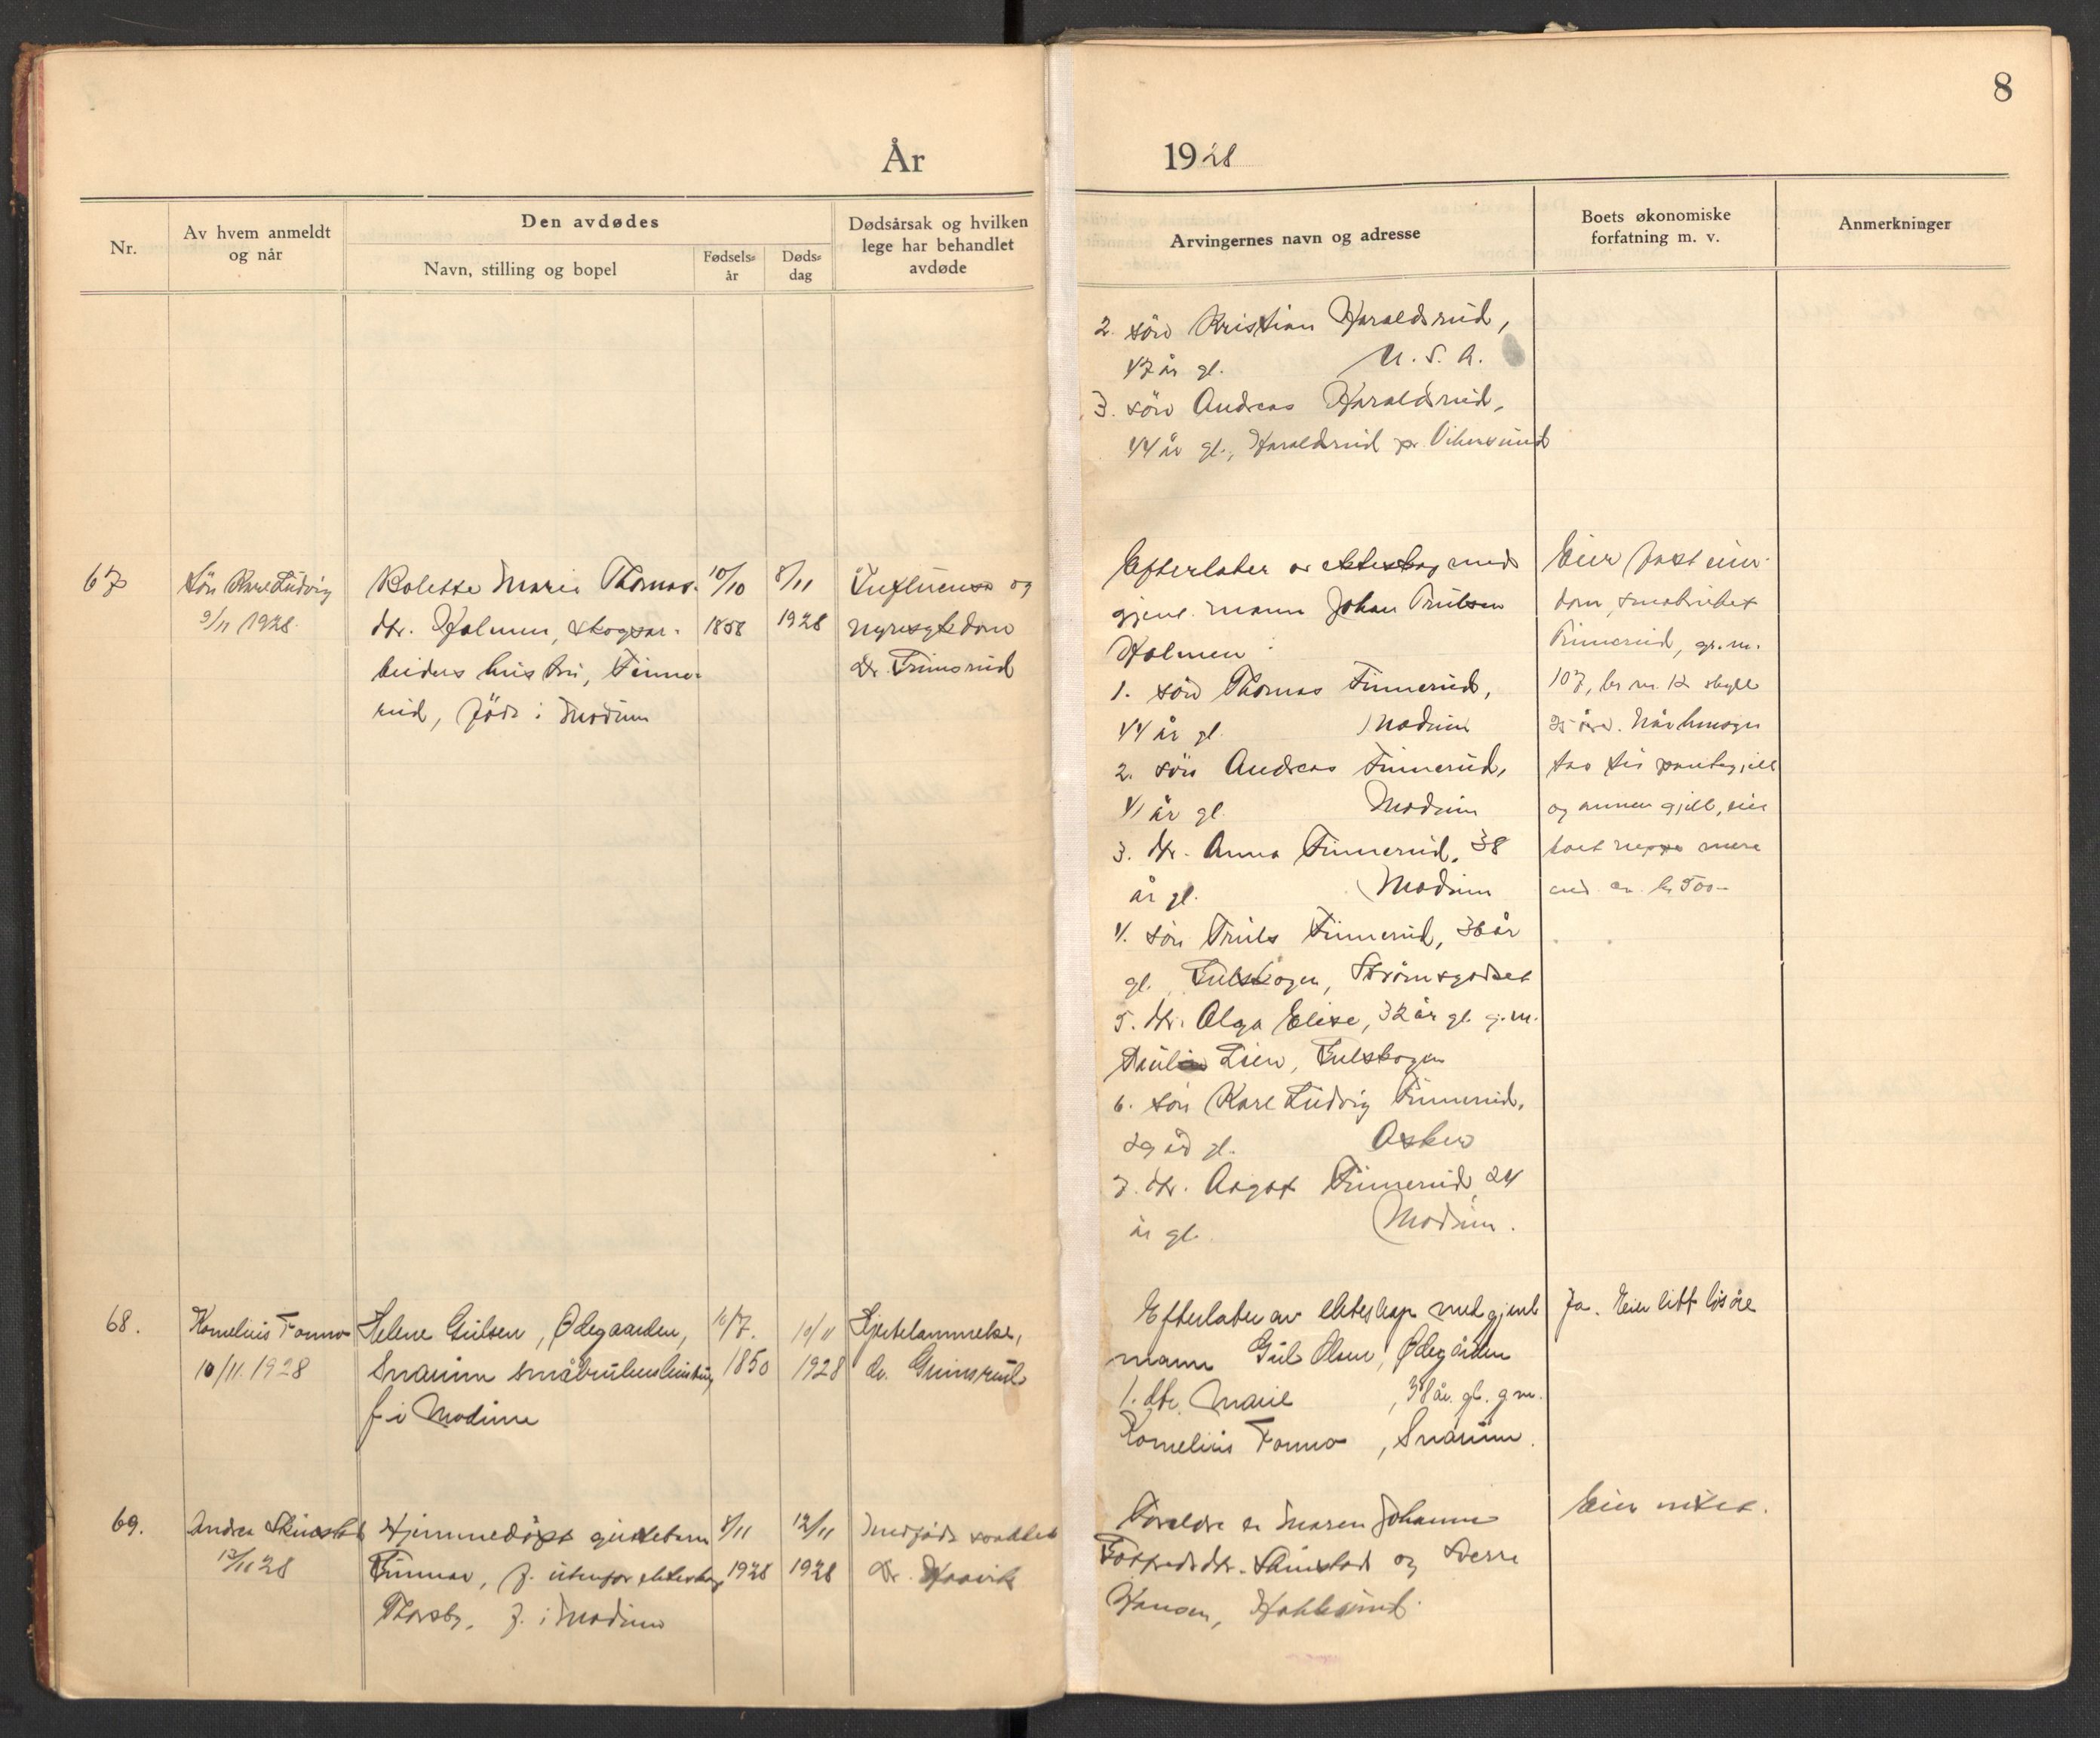 8
År
1928
Nr.
Av hvem anmeldt
og når
Den avdødes
Navn, stilling og bopel
Fødsels-
år
Døds-
dag
Dødsårsak og hvilken
lege har behandlet
avdøde
Arvingernes navn og adresse
Boets økonomiske
forfatning m. v.
Anmerkninger
2. sön Kristian Haraldsrud,
47 år gl. U. S. A.
3. sön Andreas Haraldsrud,
44 år gl., Haraldsrud pr. Vikersund
67
Sön Karl Ludvig
9/11 1928.
Bolette Marie Thomas-
dtr. Holmen, skogsar-
beiders hustru, Finne-
rud, född i Modum
10/10
1858
8/11
1928
Influensa og
nyresykdom
Dr. Grimsrud
Efterlater av ekteskap med
gjenl. mann Johan Trulsen
Holmen :
1. sön Thomas Finnerud,
44 år gl. Modum
2. sön Andreas Finnerud,
41 år gl. Modum
3. dtr. Anna Finnerud, 38
år gl. Modum
4. sön Truls Finnerud, 36 år
gl., Gulskogen, Strömsgodset
5. dtr. Olga Elise, 32 år gl. g.m.
Lien, Gulskogen
6. sön Karl Ludvig Finnerud,
29 år gl. Asker
7. dtr. Aagot Finnerud 24
år gl. Modum.
Eier fast eien-
dom, småbruket
Finnerud, gr. nr.
107, br. nr. 12 skyld
25 øre. Når hensyn
tas til pantegjeld
og annen gjeld, eier
boet neppe mere
enn ca. kr 500-
68.
Kornelius Fonno
10/11 1928
Helene Gulsen, Ødegaarden,
Snarum småbrukers hustru,
f. i Modum
16/7.
1850
10/11
1928
Hjertelammelse,
dr. Grimsrud
Efterlater av ekteskap med gjenl.
mann Gul Olsen, Ødegården
1. dtr. Marie , 38 år. gl. g.m.
Kornelius Fonno , Snarum.
Ja. Eier litt løsøre
69.
Andrea Skinstad
12/11 28
Hjemmedöpt guttebarn
Gunnar, f. utenfor ekteskap
Thorsby, f. i Modum
8/11
1928
12/11
1928
Medfødt svakhet
Dr. Haavik
Foreldre er Maren Johanne
Skinstad og Sverre
Hansen, Hokksund.
Eier intet.